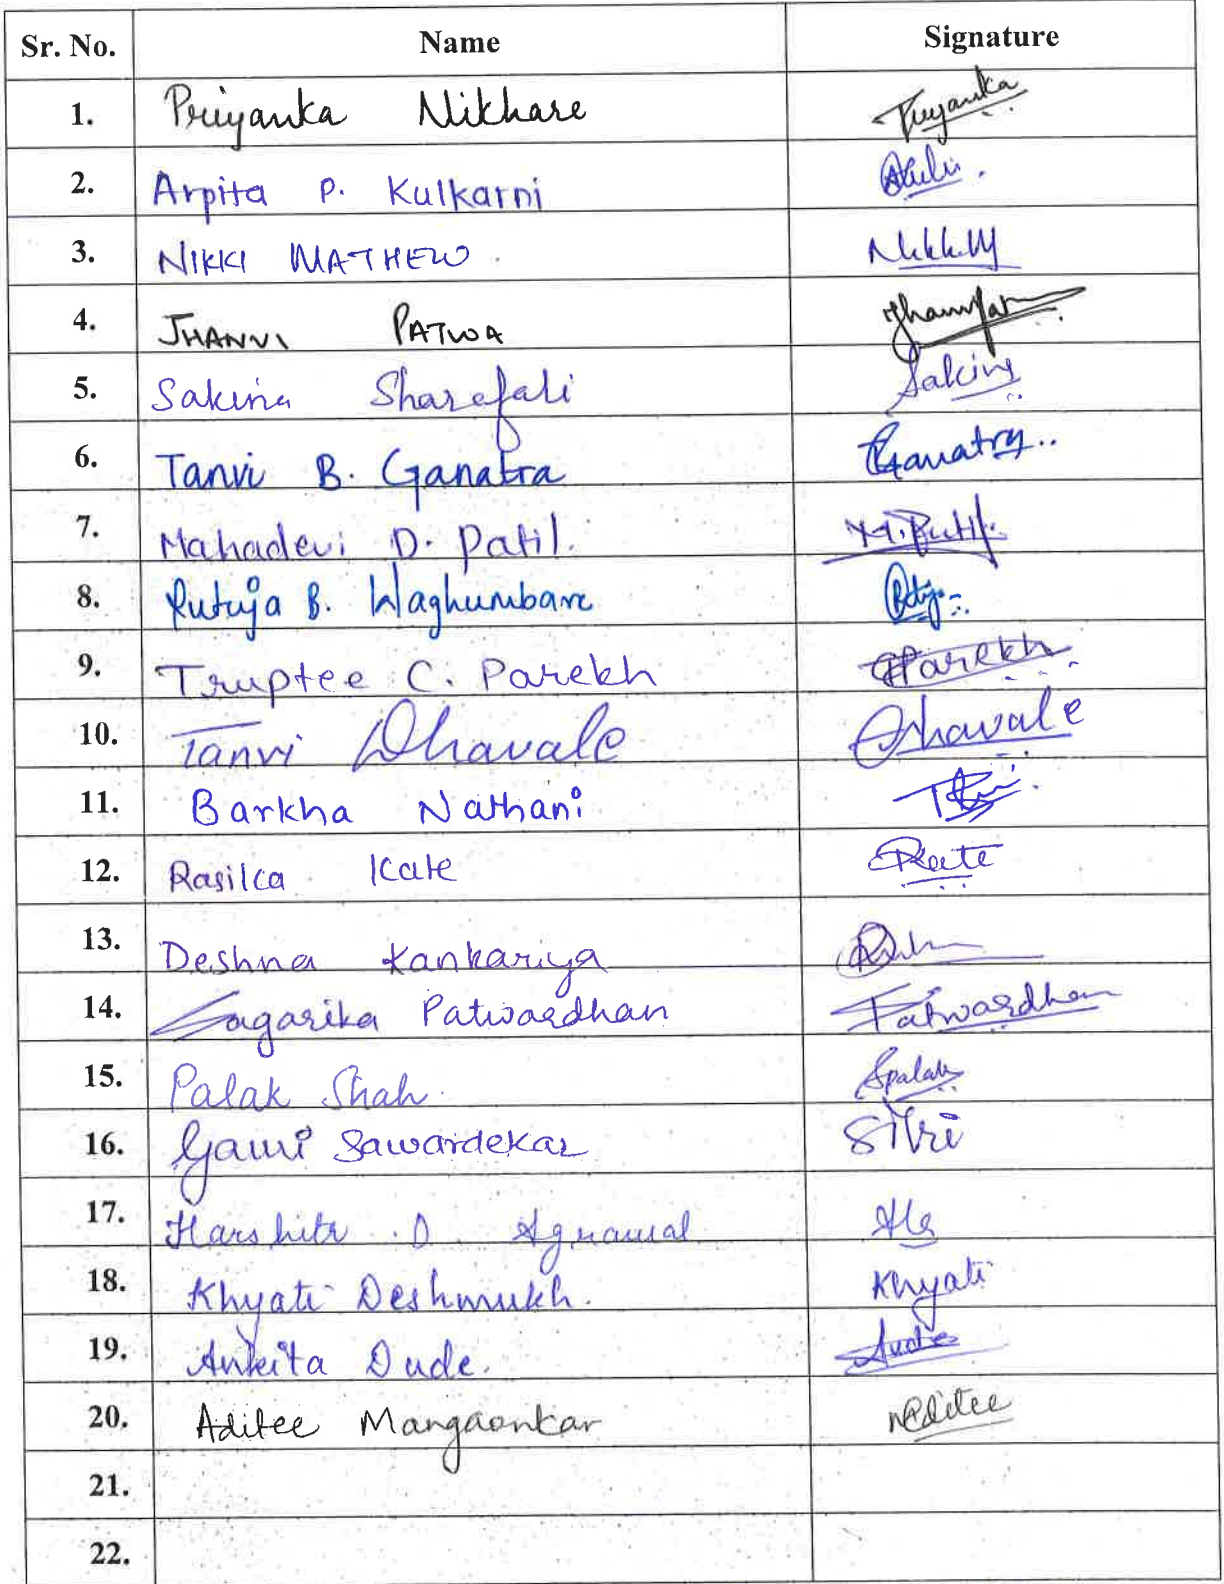 Sr. No. Name Signature
1. Priyanka Nikhare Priyanka
2. Arpita P. Kulkarni
3. NIKKI MATHEW Nikki.M
4. JHANVI PATWA
5. Sakina Sharefali Sakina
6. Tanvi B. Ganatra Ganatra..
7. Mahadevi D. Patil. M.Patil.
8. Rutuja B. Waghumbare
9. Truptee C. Parekh Parekh
10. Tanvi Dhavale Dhavale
11. Barkha Nathani
12. Rasika Kate Kate
13. Deshna Kankariya
14. Sagarika Patwardhan Patwardhan
15. Palak Shah. Spalak
16. Gauri Sawardekar
17. Harshita D. Agrawal
18. Khyati Deshmukh. Khyati
19. Ankita Dude. Dude
20. Aditee Mangaonkar Aditee
21.
22.